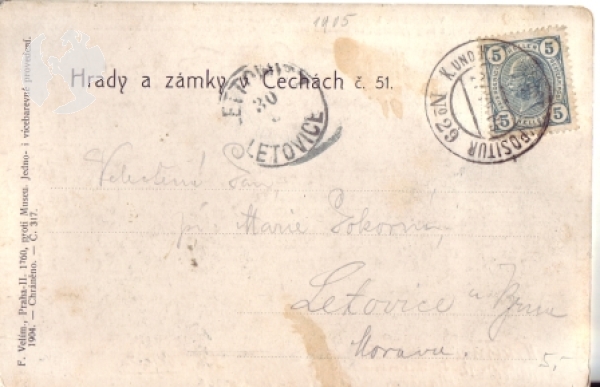 1905
Hrady a zámky v Čechách č. 51.
LETOVICE
30
LETOVICE
5 5
5 5
K. UND K.
POSITUR
No 29
Velectěná Paní
pí. Marie Pokorná
Letovice u Brna
Morava.
5,-
F. Velím., Praha-II. 1760, proti Museu. Jedno- i vícebarevné provedení.
1904. — Chráněno. — Č. 317.